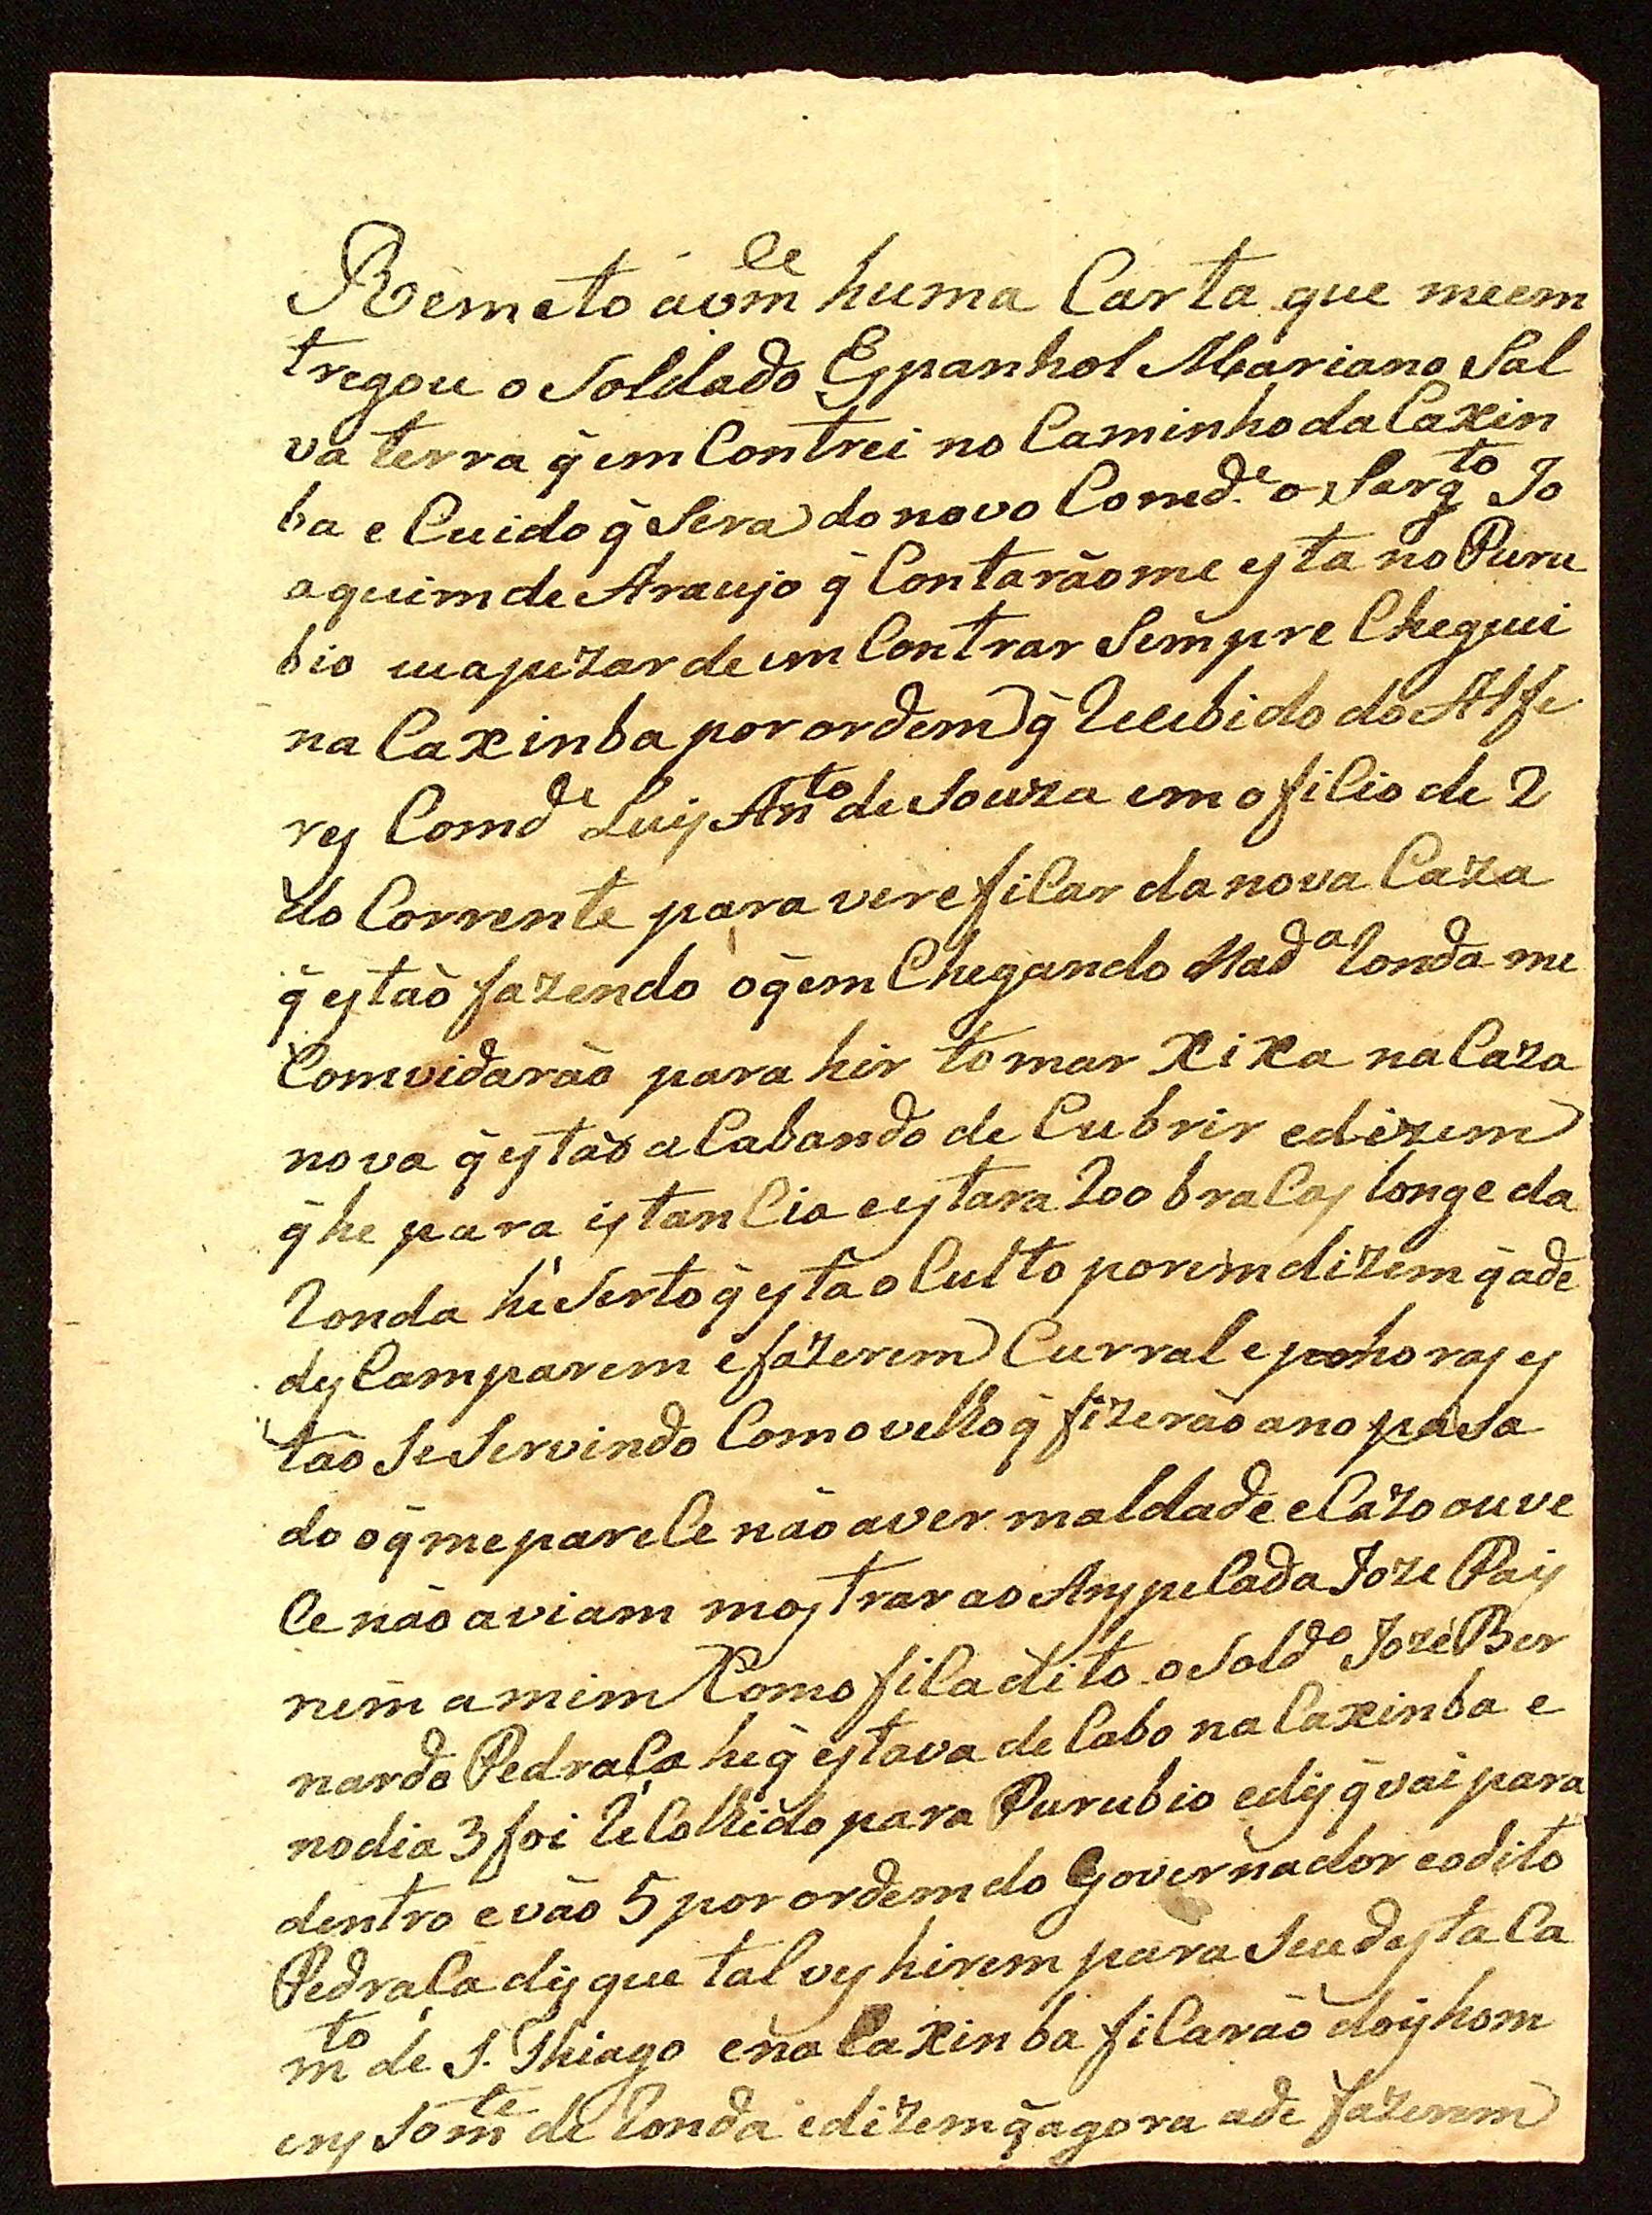 Remeto avm.ce huma Carta que meem
tregou o Soldado Espanhol Mariano Sal
va terra q̃ emContrei no Caminho da Caxin
ba e Cuido q̃ Sera do novo Comd.e o Sarg.to Jo
aquim de Araujo q̃ Contarãome esta no Puru
bio eu apezar de emContrar Sempre Cheguei
na Caxinba por ordem q̃ Recebi do do Alfe
res Comd.e Luis Ant.o de Souza em oficio de 2
do Corrente para vereficar da nova Caza
q̃ estaõ fazendo oq̃ em Chegando Nad.a Ronda me
Comvidaraõ para hir tomar Xixa na Caza
nova q̃ estaõ aCabando de Cubrir edizem
q̃ he para istanCia eestara 200 braças longe da
Ronda hé Serto q̃ esta oCulto porem dizem q̃ ade
desCamparem efazerem Curral e por horas es
taõ Se Servindo Com o velho q̃ fizeraõ ano pasa
do oq̃ me pareCe não aver maldade eCazo ouve
Ce não aviam mostrar ao Anspeçada Joze Pais
nem amim Como fiCa dito o Sold.o Jozé Ber
nardo Pedraça he q̃ estava de Cabo na Caxinba e
no dia 3 foi ReColhido para Purubio edis q̃ vai para
dentro evão 5 por ordem do Governador eodito
Pedraça dis que talves hirem para Seu destaCa
m.to de S. Thiago e na Caxinba fiCaraõ dois hom
ens Som.te de Ronda edizem q̃ agora ade fazerem